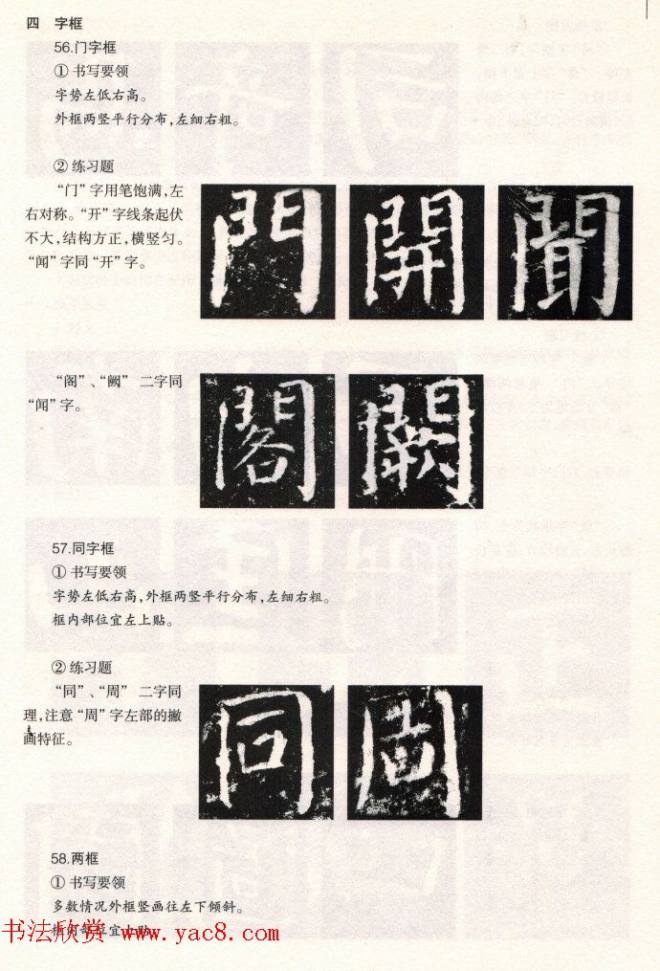 四 字框
56.门字框
①书写要领
字势左低右高。
外框两竖平行分布,左细右粗。
②练习题
“门”字用笔饱满,左
右对称。“开”字线条起伏
不大,结构方正,横竖匀。
“闻”字同“开”字。
門 開 聞
“阁”、“阙” 二字同
“闻”字。
閣 闕
57.同字框
①书写要领
字势左低右高,外框两竖平行分布,左细右粗。
框内部位宜左上贴。
②练习题
“同”、“周” 二字同
理,注意“周”字左部的撇
画特征。
同 周
58.两框
①书写要领
多数情况外框竖画往左下倾斜。
书法欣赏 www.yac8.com